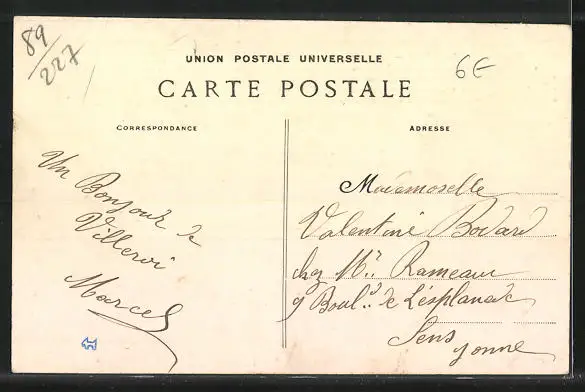 89/227
6€
UNION POSTALE UNIVERSELLE
CARTE POSTALE
CORRESPONDANCE
Un Bonjour de
Villeroi
Marcel
ADRESSE
Mademoselle
Valentine Bodard
chez Mr. Rameau
9 Boul.d de L'esplanade
Sens
yonne